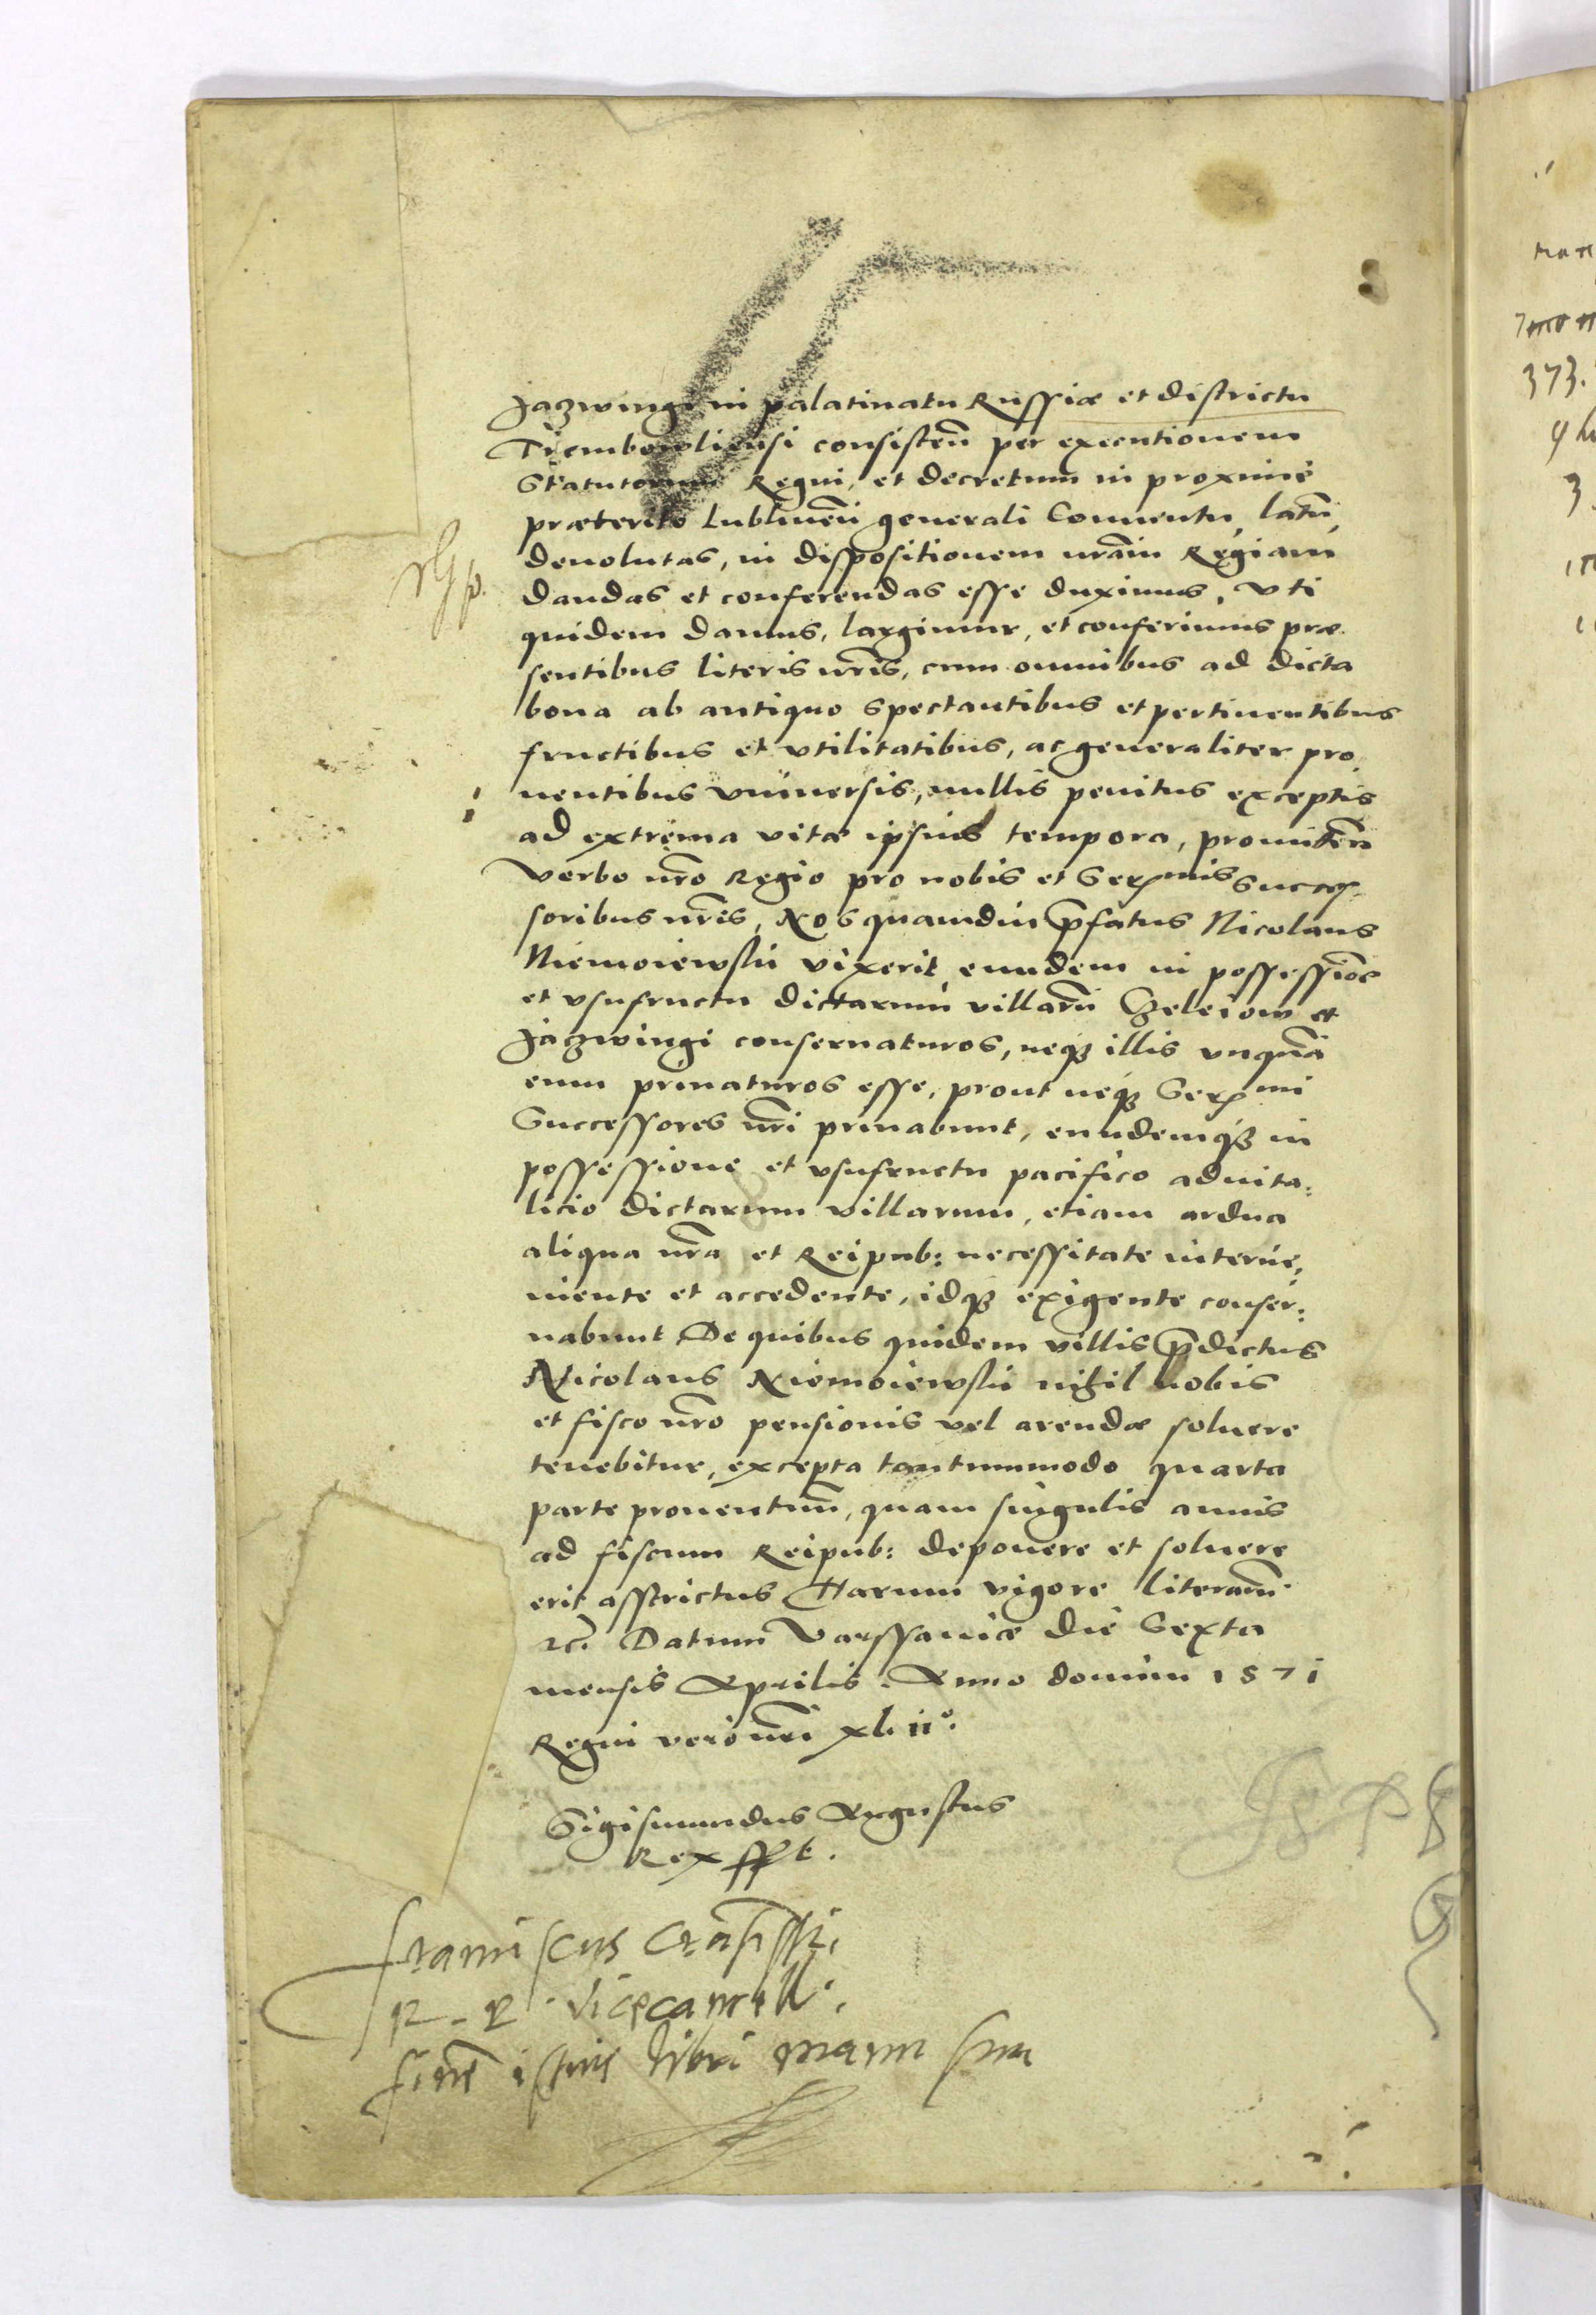 Jazwingi in palatinatu Russiæ et districtu
Trembowliensi consisteñ per executionem
Statutorum Regni, et decretum in proxime
præterito Lublineñ generali Conuentu latũ,
deuolutas, in dispositionem nrãm Regiam
dandas et conferendas esse duximus, vti
quidem damus, largimur, et conferimus præ
sentibus literis nrĩs, cum omnibus ad dicta
bona ab antiquo spectantibus et pertinentibus
fructibus et vtilitatibus, ac generaliter pro,
uentibus vniuersis, nullis penitus exceptis
ad extrema vitæ ipsius tempora, promitteñ
verbo nrõ Regio pro nobis et Sermis Succes,
soribus nrĩs, Nos quamdiu p̃fatus Nicolaus
Niemoiewski vixerit, eundem in possessiõe
et vsufructu dictarum villarũ Czeleiow et
Jazwingi conseruaturos, neqȝ illis vnquã
eum priuaturos esse, prout neqȝ Sermi
Successores nrĩ priuabunt, eundemqȝ in
possessione et vsufructu pacifico aduita:
licio dictarum villarum, etiam ardua
aliqua nrã et Reipub: necessitate interue,
niente et accedente, idqȝ exigente conser:
uabunt. De quibus quidem villis p̃dictus
Nicolaus Niemoiewski nihil nobis
et fisco nrõ pensionis vel arendæ soluere
tenebitur, excepta tantummodo quarta
parte prouentuũ, quam singulis annis
ad fiscum Reipub: deponere et soluere
erit asstrictus Harum vigore literarũ
rc̃. Datum Varssauiæ die Sexta
mensis Aprilis. Anno domini 1571
Regni vero nrĩ xlii°.
Sigismundus Augustus
Rex sspt.
Franciscus Crasiski
R. P. vicecancell.
finẽ istius libri manu sua